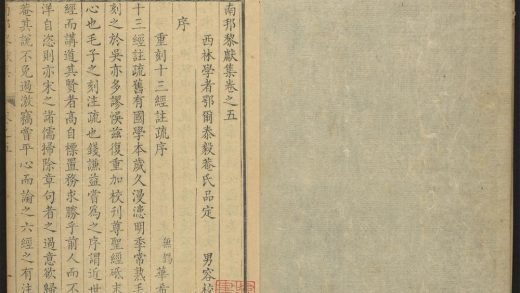 南邦黎獻集卷之五
西林學者鄂爾泰毅菴氏品定 男容
序
重刻十三經註疏序 無錫華希
十三經註疏舊有國學本歲久漫漶明季常熟毛
刻之於吳亦多謬悞茲復重加校刋尊聖經砥末
心也毛子之刻注疏也錢謙益嘗為之序謂近世
經而講道其賢者高自標置務求勝乎前人而不
洋自恣則亦宋之諸儒掃除章句者之過意欲歸
菴其說不免過激竊嘗平心而論之六經之有注